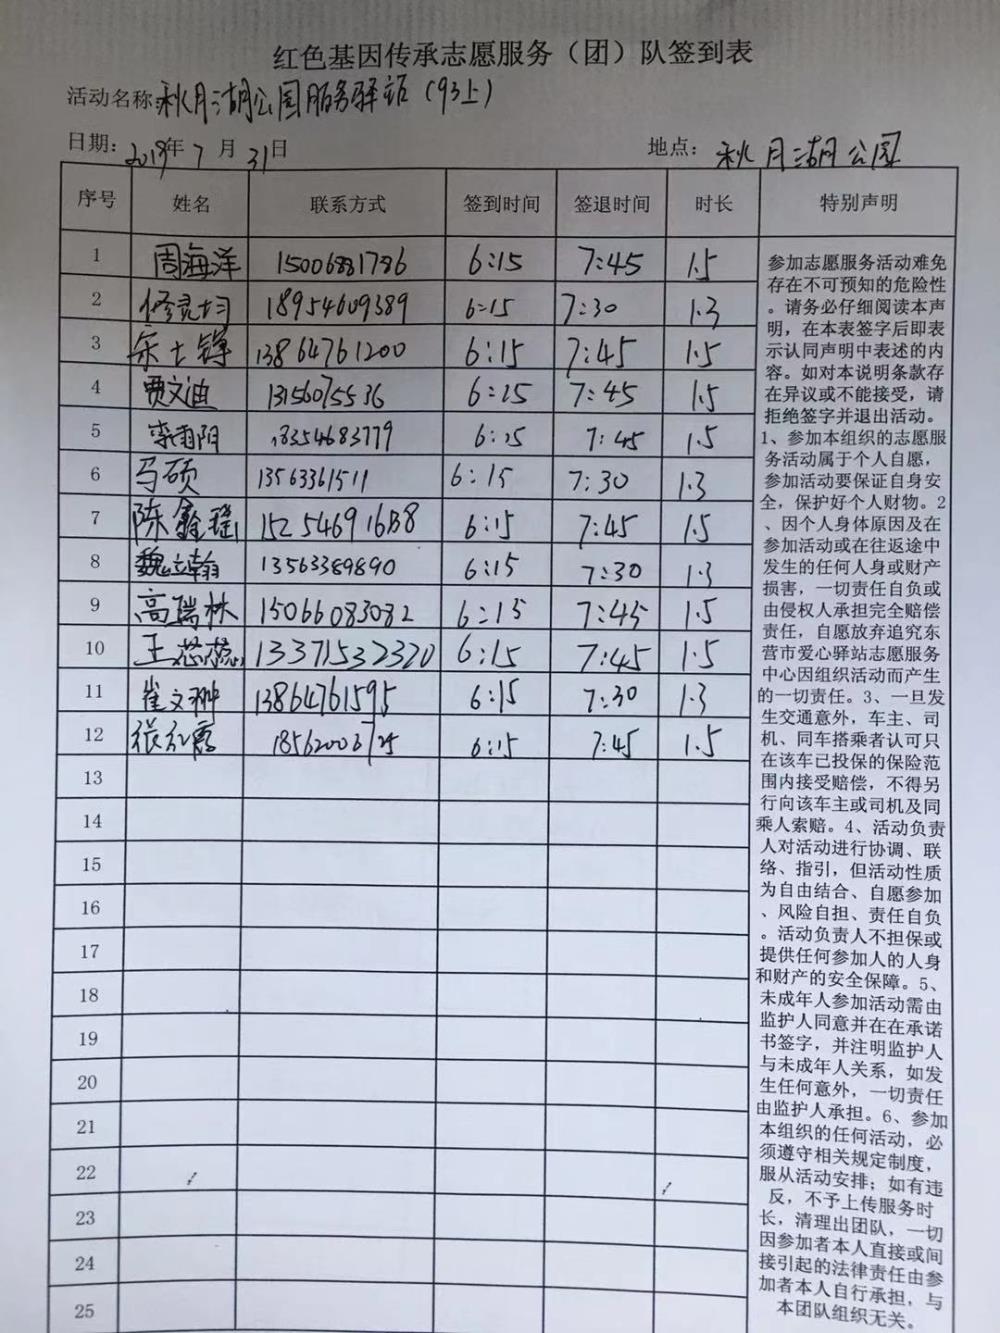 红色基因传承志愿服务（团）队签到表
活动名称：秋月湖公园服务驿站（93上）
日期：2019年7月31日 地点：秋月湖公园
序号 姓名 联系方式 签到时间 签退时间 时长 特别声明
1 周海洋 15006881786 6:15 7:45 1.5
2 18954609389 6:15 7:30 1.3
3 宋士锋 13864761200 6:15 7:45 1.5
4 贾文迪 13156075536 6:15 7:45 1.5
5 李雨阳 18354683779 6:15 7:45 1.5
6 马硕 13563361511 6:15 7:30 1.3
7 陈鑫瑶 6:15 7:45 1.5
8 魏立翰 13563389890 6:15 7:30 1.3
9 高瑞林 15066083082 6:15 7:45 1.5
10 王蕊蕊 13371532320 6:15 7:45 1.5
11 崔文翀 13864761595 6:15 7:30 1.3
12 张红霞 18562006725 6:15 7:45 1.5
13
14
15
16
17
18
19
20
21
22
23
24
25
参加志愿服务活动难免
存在不可预知的危险性
。请务必仔细阅读本声
明，在本表签字后即表
示认同声明中表述的内
容。如对本说明条款存
在异议或不能接受，请
拒绝签字并退出活动。
1、参加本组织的志愿服
务活动属于个人自愿，
参加活动要保证自身安
全，保护好个人财物。2
、因个人身体原因及在
参加活动或在往返途中
发生的任何人身或财产
损害，一切责任自负或
由侵权人承担完全赔偿
责任，自愿放弃追究东
营市爱心驿站志愿服务
中心因组织活动而产生
的一切责任。3、一旦发
生交通意外，车主、司
机、同车搭乘者认可只
在该车已投保的保险范
围内接受赔偿，不得另
行向该车主或司机及同
乘人索赔。4、活动负责
人对活动进行协调、联
络、指引，但活动性质
为自由结合、自愿参加
、风险自担、责任自负
。活动负责人不担保或
提供任何参加人的人身
和财产的安全保障。5、
未成年人参加活动需由
监护人同意并在在承诺
书签字，并注明监护人
与未成年人关系，如发
生任何意外，一切责任
由监护人承担。6、参加
本组织的任何活动，必
须遵守相关规定制度，
服从活动安排；如有违
反，不予上传服务时
长，清理出团队，一切
因参加者本人直接或间
接引起的法律责任由参
加者本人自行承担，与
本团队组织无关。